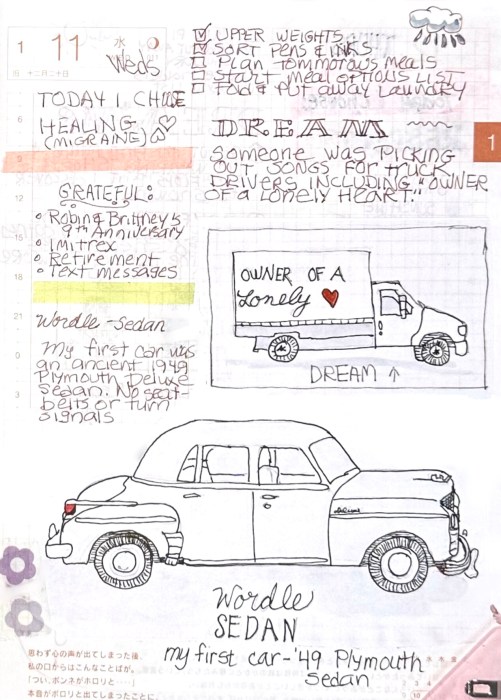 1 11 水
十二月二十日
Weds
UPPER WEIGHTS
SORT PENS & INKS
Plan tommorous meals
START MEAL OPTIONS LIST
Fold & put away laundry
TODAY I CHOOSE
HEALING
(MIGRAINE)
DREAM
SOMEONE WAS PICKING
OUT SONGS FOR TRUCK
DRIVERS INCLUDING "OWNER
OF A LONELY HEART."
1
9
12
15
18
21
0
3
GRATEFUL:
• Robin & Brittney's
9th Anniversary
• Imitrex
• Retirement
• Text messages
OWNER OF A
Lonely
DREAM ↑
Wordle - Sedan
My first car was
an ancient 1949
Plymouth Deluxe
Sedan. No seat-
belts or turn
signals
Wordle
SEDAN
my first car - '49 Plymouth
sedan
思わず心の声が出てしまった後、
私の口からはこんなことばが。
「つい、ホンネがポロリと……」
本音がポロリと出てしまったことに、